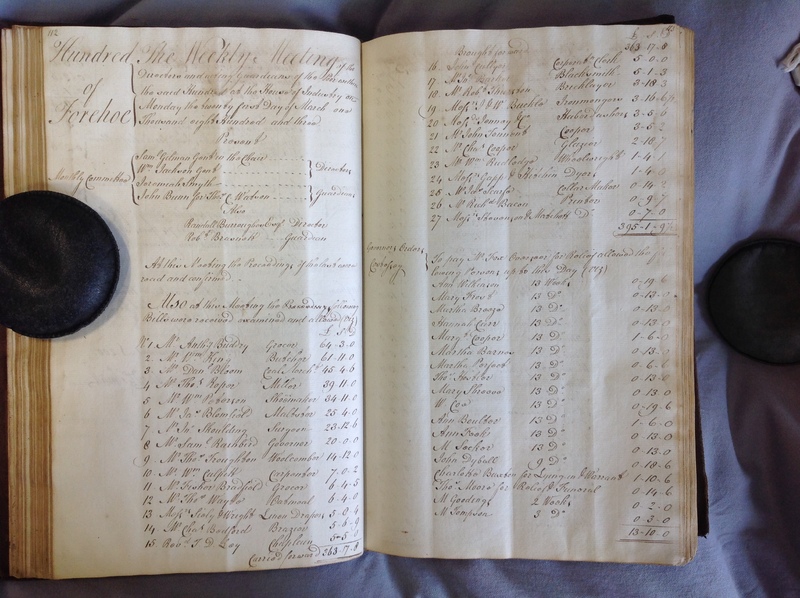 112
Hundred
of
Forehoe
The Weekly Meeting of the
Directors and acting Guardians of the Poor within
the said Hundred at the House of Industry on
Monday the twenty first Day of March one
Thousand eight Hundred and three
Present
Monthly Committee
Saml Gilman Gent in the Chair
Wm Jackson Gent
Directors
Jeremiah Smyth
John Bunn for Thos Watson
Guardians
Also
Randall Burroughes Esqr Director
Robt Guardian
At this Meeting the Proceedings of the last were
read and confirmed
Also at this Meeting the following
Bills were received examined and allowed
£ s d
No 1 Mr Anthy Grocer 64-3-0
2 Mr Wm King Butcher 61-11-0
3 Mr Danl Bloom Coal Mercht 45-4-6
4 Mr Thos Roper Miller 39-11-0
5 Mr Wm Shoemaker 34-11-0
6 Mr Jas Maltster 25-4-0
7 Mr Jas Surgeon 23-12-6
8 Mr Saml Governor 20-0-0
9 Mr Thos Woolcomber 14-12-0
10 Mr Wm Carpenter 7-0-2
11 Mr Bradfield Grocer 6-4-5
12 Mr Thos Oatmeal 6-4-0
13 Messrs & Wright Linen Drapers 5-0-4
14 Mr Chas Bradford Brazier 5-6-9
15 Revd T D Loy Chaplain 5-5-0
Carried forward 363-17-8
£ s d
Brought forward 363-17-8
16 Carpents Clerk 5-0-0
17 Blacksmith 5-1-3
18 Mr Robt Bricklayer 3-18-3
19 Messrs J & W Ironmongers 3-16-6
20 Messrs & Co 3-5-6
21 Mr John Cooper 3-5-2
22 Mr Chas Cooper Glazier 2-18-7
23 Mr Wm Rudledge Wheelwright 1-4-1
24 Messrs Dyers 1-4-0
25 Collar Maker 0-14-2
26 Mr Richd Bacon Printer 0-9-7
27 Messrs Stevenson & Matchett Do 0-7-0
395-1-9½
Governors Orders
Costessey
To pay Mr Fox Overseer for Relief allowed the
following Persons up to this Day
Ann Wilkinson 13 Weeks 0-19-6
Mary Frost 13 Do 0-13-0
Martha 13 Do 0-13-0
Hannah Carr 13 Do 0-13-0
Mary Cooper 13 Do 1-6-0
Martha Barnes 13 Do 0-13-0
Martha 13 Do 0-6-6
Thos 13 Do 0-13-0
Mary 13 Do 0-13-0
W Cox 13 Do 0-19-6
Ann Boulter 13 Do 1-6-0
Ann 13 Do 0-13-0
M 13 Do 0-13-0
John Dyball 9 Do 0-18-6
Charlotte Buxton for Lying in & Warrant 1-10-6
Thos Moore for Relief & Funeral 0-14-6
M Gooding 2 Weeks 0-2-0
M Tompson 3 Do 0-3-0
13-10-0